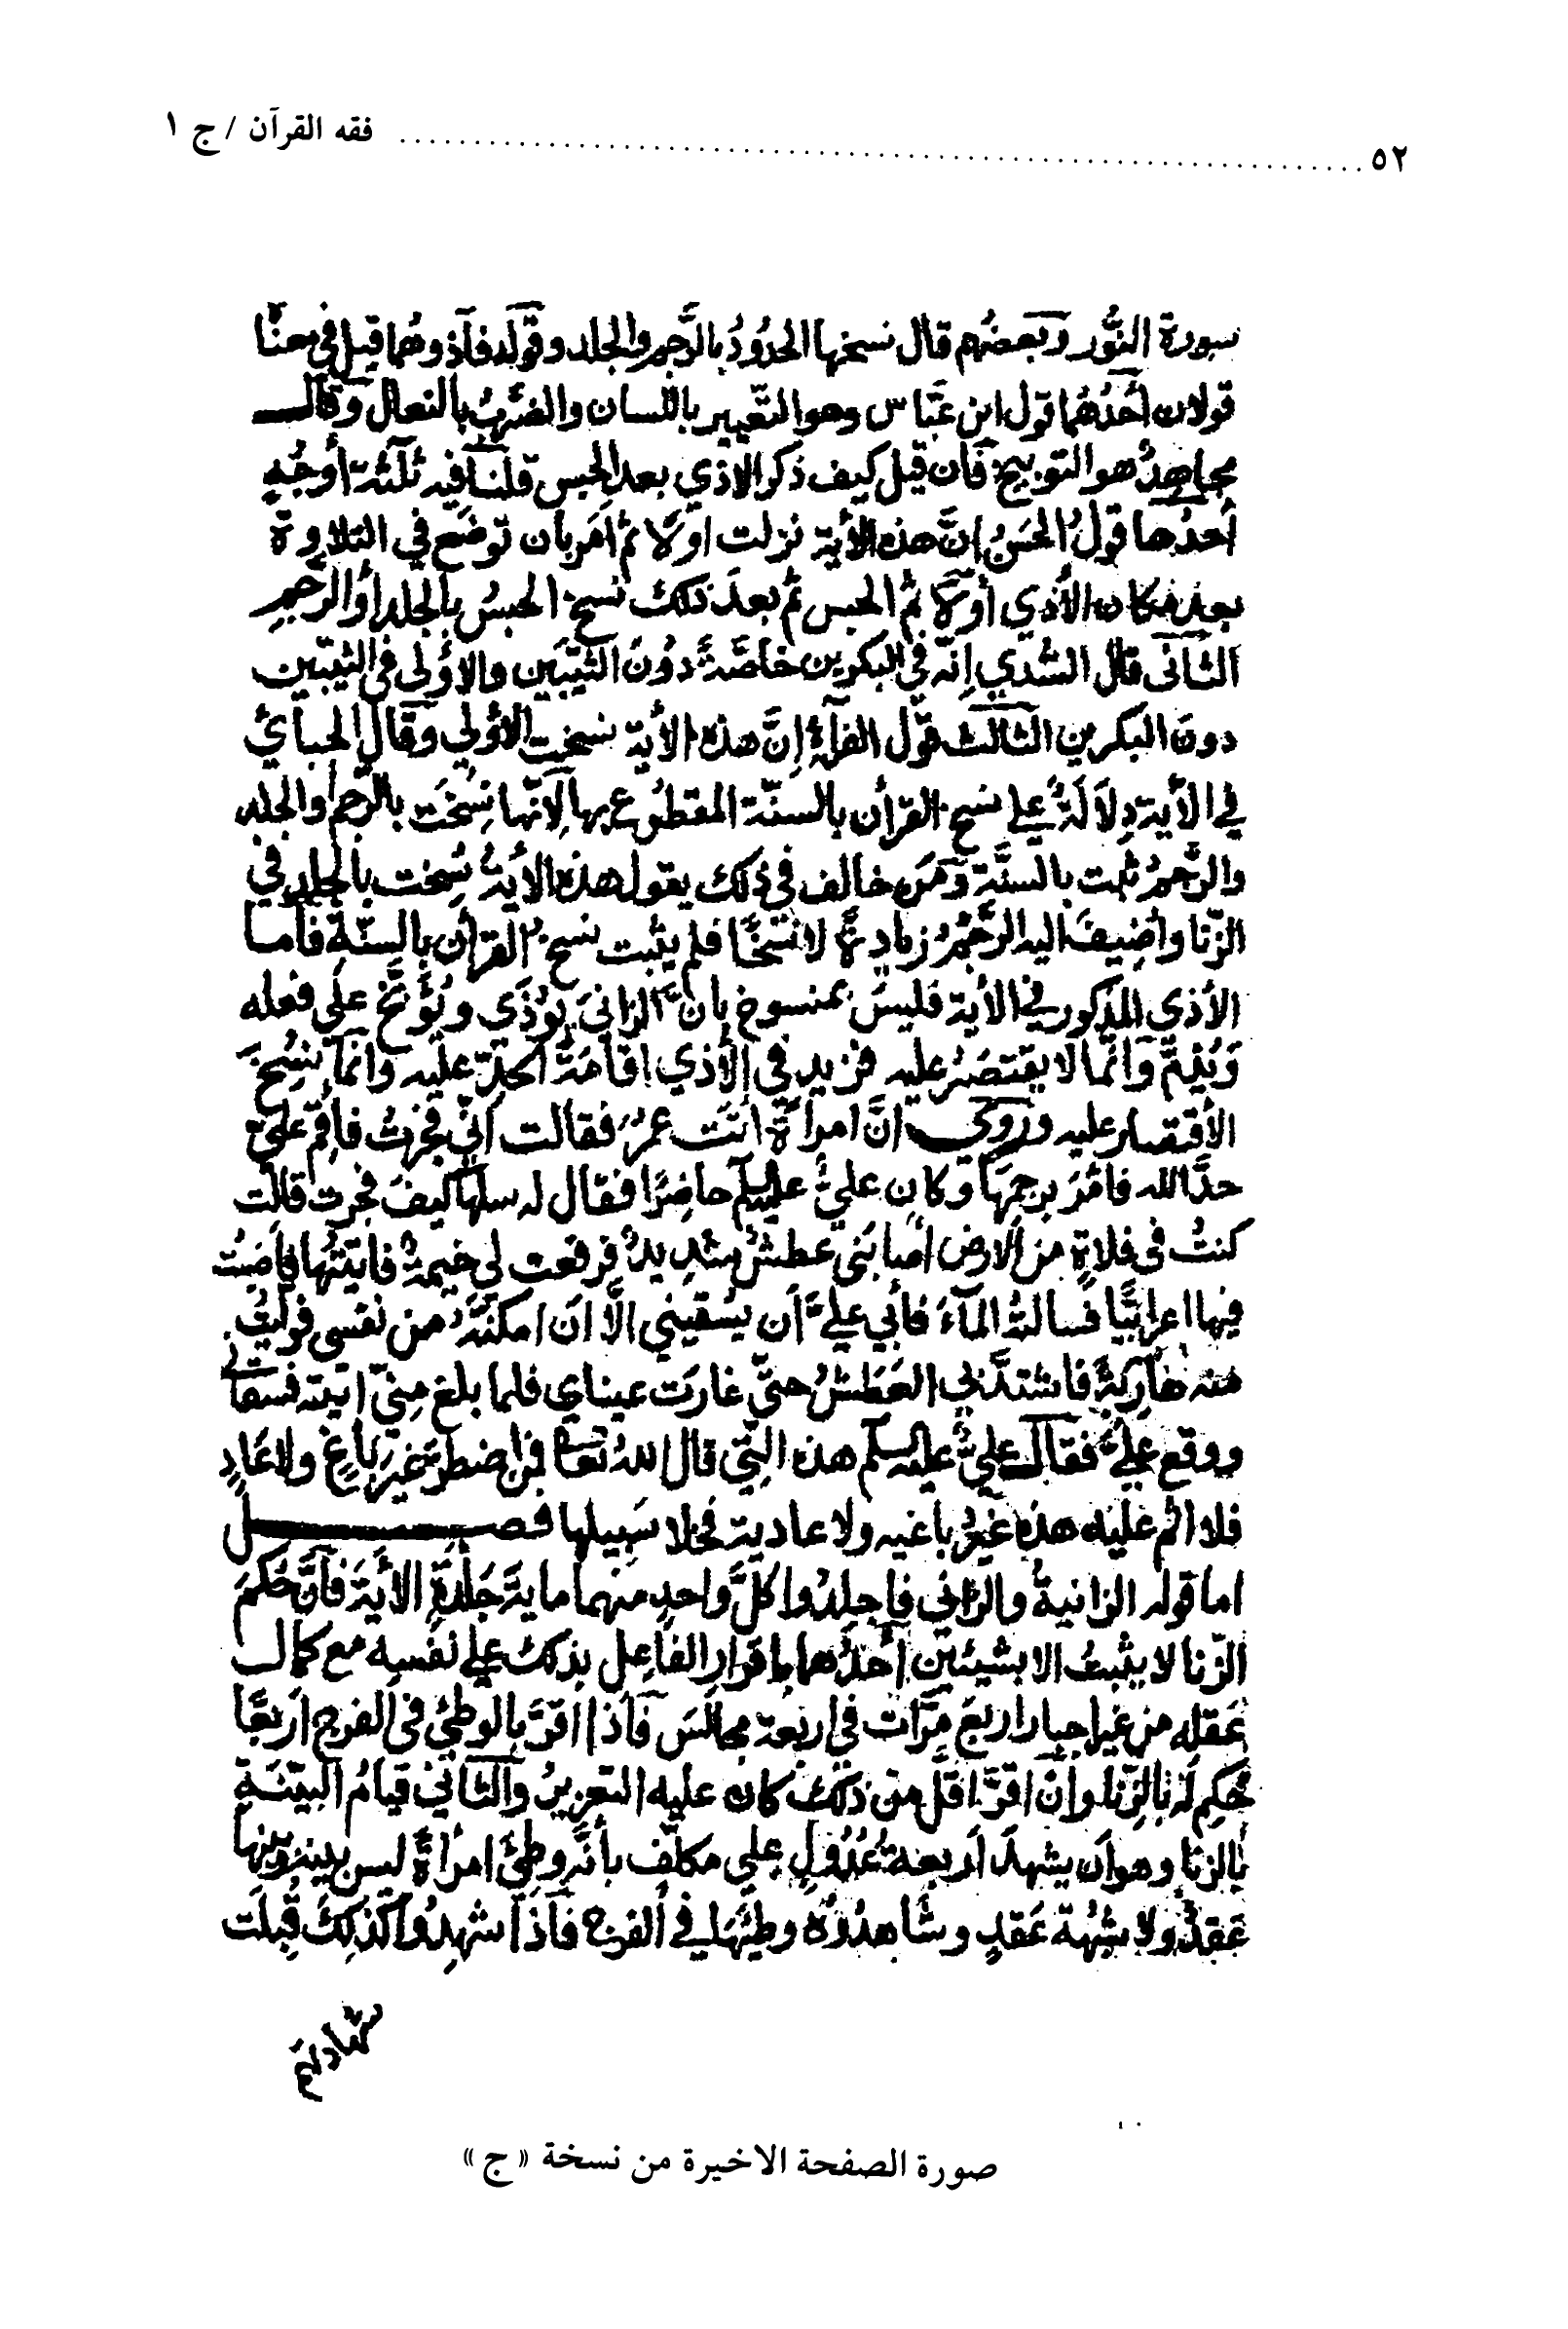 ٥٢ ........ فقه القرآن / ج ١
سورة النُّور وبعضُهم قال نسخها الحدُودُ بالرَّجم والجلد وقَوله فآذوهُما قيل في معنا
قولان أحَدُهُما قول ابن عبّاس وهو التعيير باللسان والضّربُ بالنعال وَقال
مجاهِدُ هو التوبيخ فَان قيل كيف ذكر الاذي بعد الحبس قلنا فيه ثلثة أوجُهٍ
أحدُها قولُ الحَسَنُ انَّ هذه الأية نزلت اوّلاً ثمّ امَر بان توضَع في التلاوة
بعد فكان الأذي أوّلاً ثمّ الحبس ثمّ بعدَ ذلك نسخ الحبسُ بالجلد أو الرّجمِ
الثاني قال السُّدي إنّه في البكرين خاصَّةً دوُنَ الثيّبَين والأولي في الثيّبين
دونَ البكرين الثالث قول الفرّاء إنَّ هذه الأية نسخت الأولي وقال الجبائي
في الأية دِلالَةٌ علي نسخ القرأن بالسنّة المقطُوع بها لِانّها نُسِخَت بالرّجم أو الجلد
والرّجمُ ثبت بالسنَّة وَمَن خالف في ذلك يقول هذه الأيةُ نُسِخت بالجلد في
الزّنا وأضِيفَ اليه الرَّجمُ زيادةً لا نَسخًا فلم يثبت نسخ القرأن بالسنّةِ فأما
الأذي المذكور في الأية فليسَ بمنسوخ بانَّ الزانيَ يوُذَي ويُوَبَّخ علَي فعله
وَيُذَمُّ وَانّما لا يقتصَرُ عليه فزيد في الأذي اقامَةَ الحدّ عليه وانّما نُسِخَ
الأقتصار عليه ورُوي انَّ امرأةً اتَت عمرَ فقالت انّي فجرتُ فاَقِم عليّ
حدَّ الله فامَرَ برجمِهَا وَكان عليٌّ عليه السلم حاضِرًا فقال له سلها كيفَ فجرت قالت
كنتُ في فلاةٍ من الارض أصابَني عطشٌ شديدٌ فرفعت لي خيمةٌ فاتيتُها فاصَبتُ
فيها اعرابيًّا فسالتُهُ المآءَ فأبي عليَّ أن يسقيني الَّا ان امكنَهُ من نفسي فولّيتُ
منه هاربةً فاشتدَّ بي العَطَشُ حتّي غارَت عيناي فلما بلغ مِنّي اتيته فسقاني
ووقع عليَّ فقال عليٌّ عليه السلم هذه الّتِي قال اللهُ تعا فمن اضطرّ غير باغٍ ولا عَادٍ
فلا اثم عليه هذه غيرُ باغيه ولا عادية فخلا سَبيلها فصــــل
اما قوله الزانيةُ والزاني فاجلِدُوا كلَّ واحدٍ منهما مايةَ جَلدةٍ الأيَةَ فاَنَّ حُكمَ
الزّنا لا يثبتُ الا بشيئين أحَدُهما باقرارِ الفاعِل بذلك علي نفسِه مع كمال
عَقله من غير اجبار اربعَ مرّات في اربعة مجالسَ فَاذا اقرَّ بالوطئِ في الفرج اربعًا
حُكِم لَهُ بالزّنا وإن اقرَّ اقلَّ من ذلك كان عليه التعزيرُ والثاني قيامُ البيّنَةِ
بالزنا وهو ان يشهدَ اربعةُ عُدُولٍ علي مكلّف بأنَّه وطِئَ امرأةً ليس بينه وبينها
عَقدٌ ولا شُبهة عَقدٍ وشاهدُوُه وطِئَها في الفرج فَاذا شهِدُوا كذلِكَ قُبِلَت
شهادتهم
صورة الصفحة الاخيرة من نسخة « ج »